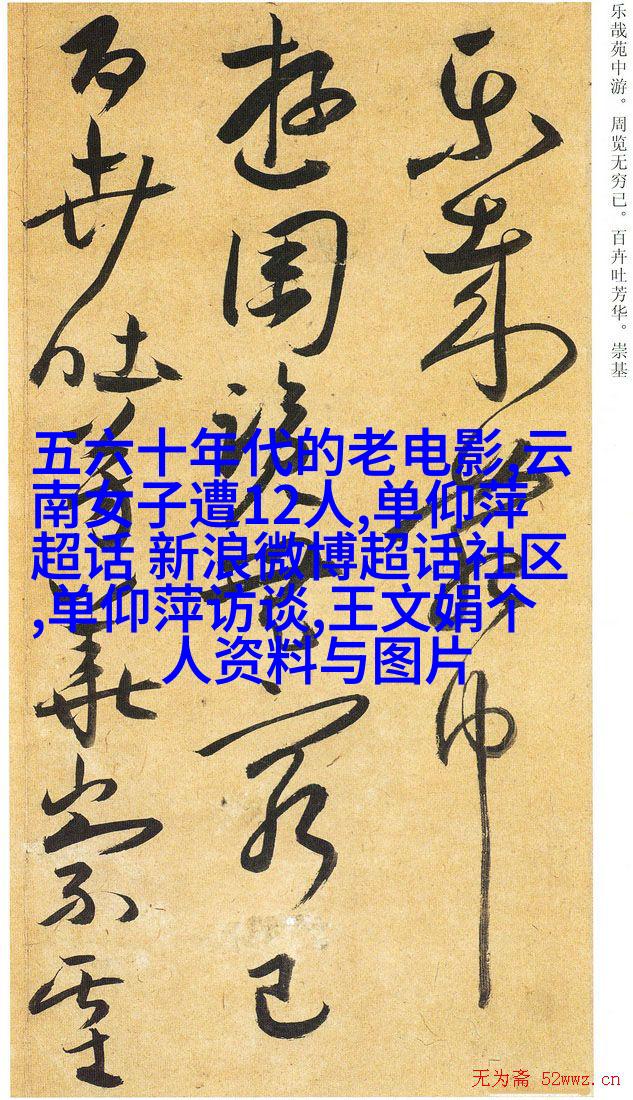 乐哉苑中游。周览无穷已。百卉吐芳华。崇基
乐哉苑中
遊周覽無窮已
百卉吐芳華崇基
五六十年代的老电影,云
南女子遭12人,单仰萍
超话 新浪微博超话社区
,单仰萍访谈,王文娟个
人资料与图片
无为斋 52wwz.cn